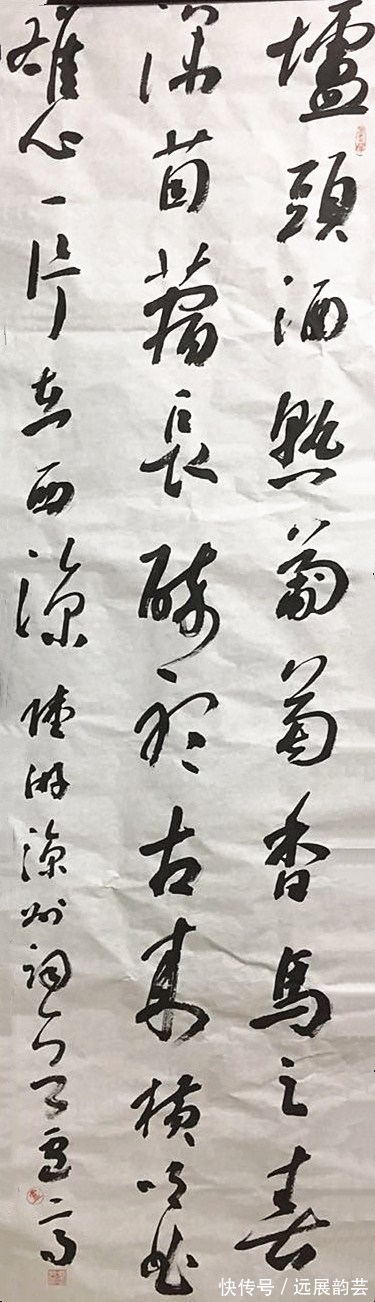 壚頭酒熟葡萄香馬足春
深苜蓿長醉聽古來橫吹曲
雄心一片在西涼 陸游涼州詞
快传号 / 远展韵芸